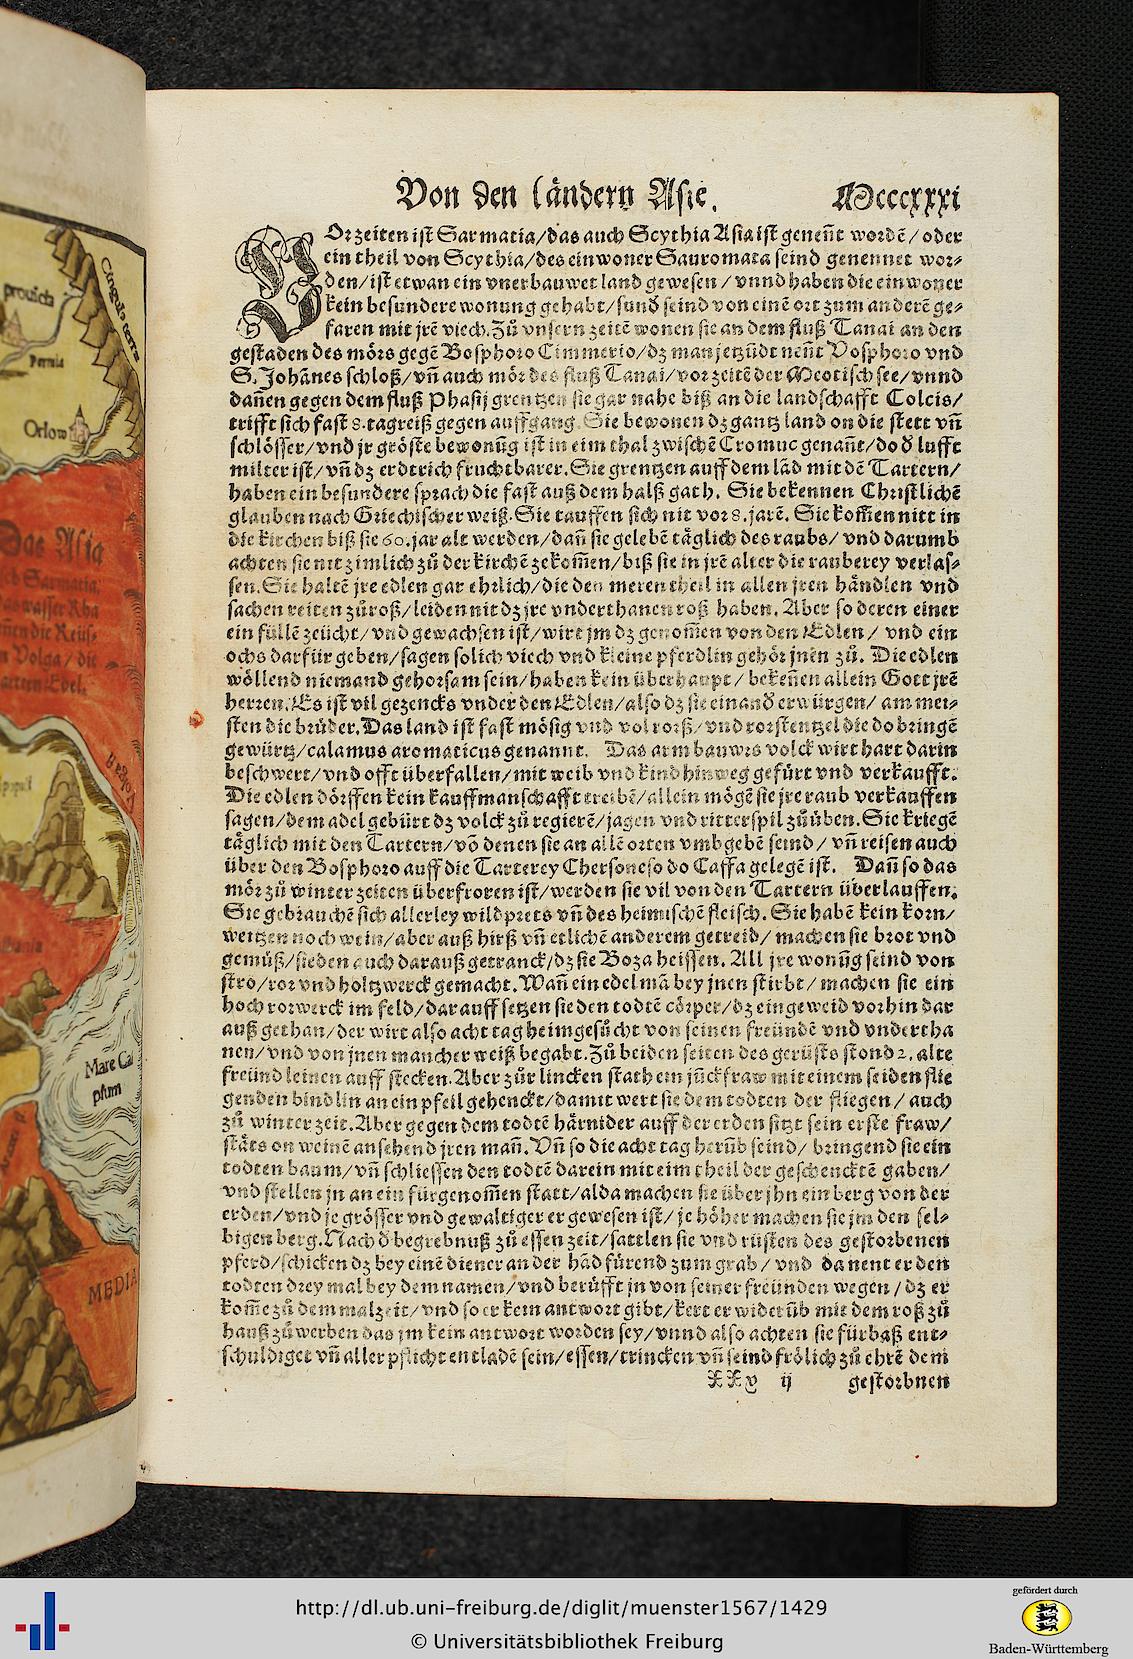 Von den ländern Asie.
Mcccxxxi
VOrzeiten ist Sarmatia/das auch Scythia Asia ist geneñt wordē/oder
ein theil von Scythia/des einwoner Sauromata seind genennet wor-
den/ist etwan ein vnerbauwet land gewesen/vnnd haben die einwoner
kein besundere wonung gehabt/sund seind von einē ort zum anderē ge-
faren mit jrē viech. Zů vnsern zeitē wonen sie an dem fluß Tanai an den
gestaden des mörs gegē Bosphoro Cimmerio/dz man jetzūdt neñt Vosphoro vnd
S. Johānes schloß/vñ auch mör des fluß Tanai/vor zeitē der Meotisch see/vnnd
dañen gegen dem fluß Phasij grentzen sie gar nahe biß an die landschafft Colcis/
trifft sich fast 8. tagreiß gegen auffgang. Sie bewonen dz gantz land on die stett vñ
schlösser/vnd jr gröste bewonūg ist in eim thal zwischē Cromuc genañt/do d̄ lufft
milter ist/vñ dz erdtrich fruchtbarer. Sie grentzen auff dem lād mit dē Tartern/
haben ein besundere sprach die fast auß dem halß gath. Sie bekennen Christlichē
glauben nach Griechischer weiß. Sie tauffen sich nit vor 8. jarē. Sie kom̄en nitt in
die kirchen biß sie 60. jar alt werden/dañ sie gelebē täglich des raubs/vnd darumb
achten sie nit zimlich zů der kirchē zekom̄en/biß sie in jrē alter die rauberey verlas-
sen. Sie haltē jre edlen gar ehrlich/die den meren theil in allen jren händlen vnd
sachen reiten zůroß/leiden nit dz jre vnderthanen roß haben. Aber so deren einer
ein füllē zeücht/vnd gewachsen ist/wirt jm dz genom̄en von den Edlen/vnd ein
ochs darfür geben/sagen solich viech vnd kleine pferdlin gehör jnen zů. Die edlen
wöllend niemand gehorsam sein/haben kein überhaupt/bekeñen allein Gott jrē
herren. Es ist vil gezencks vnder den Edlen/also dz sie einand̄ erwürgen/am mei-
sten die brüder. Das land ist fast mösig vnd vol rorß/vnd rorstentzel die do bringē
gewürtz/calamus aromaticus genannt. Das arm bauwrs volck wirt hart darin
beschwert/vnd offt überfallen/mit weib vnd kind hinweg gefürt vnd verkaufft.
Die edlen dörffen kein kauffmanschafft treibē/allein mögē sie jre raub verkauffen
sagen/dem adel gebürt dz volck zů regierē/jagen vnd ritterspil zůüben. Sie kriegē
täglich mit den Tartern/vō denen sie an allē orten vmbgebē seind/vñ reisen auch
über den Bosphoro auff die Tarterey Chersoneso do Caffa gelegē ist. Dañ so das
mör zů winter zeiten überfroren ist/werden sie vil von den Tartern überlauffen.
Sie gebrauchē sich allerley wildprets vñ des heimischē fleisch. Sie habē kein korn/
weitzen noch wein/aber auß hirß vñ etlichē anderem getreid/machen sie brot vnd
gemüß/sieden auch darauß getranck/dz sie Boza heissen. All jre wonūg seind von
stro/ror vnd holtzwerck gemacht. Wañ ein edel mā bey jnen stirbt/machen sie ein
hoch rorwerck im feld/darauff setzen sie den todtē cörper/dz eingeweid vorhin dar
auß gethan/der wirt also acht tag heimgesůcht von seinen freündē vnd vndertha
nen/vnd von jnen mancher weiß begabt. Zů beiden seiten des gerüsts stond 2. alte
freünd leinen auff stecken. Aber zůr lincken stath ein jūckfraw mit einem seiden flie
genden bindlin an ein pfeil gehenckt/damit wert sie dem todten der fliegen/auch
zů winter zeit. Aber gegen dem todtē härnider auff der erden sitzt sein erste fraw/
stäts on weinē ansehend jren mañ. Vñ so die acht tag herūb seind/bringend sie ein
todten baum/vñ schliessen den todtē darein mit eim theil der geschencktē gaben/
vnd stellen jn an ein fürgenom̄en statt/alda machen sie über jhn ein berg von der
erden/vnd je grösser vnd gewaltiger er gewesen ist/je höher machen sie jm den sel-
bigen berg. Nach d̄ begrebnuß zů essen zeit/sattlen sie vnd rüsten des gestorbenen
pferd/schicken dz bey einē diener an der hād fürend zum grab/vnd da nent er den
todten drey mal bey dem namen/vnd berüfft jn von seiner freünden wegen/dz er
kom̄e zů dem malzeit/vnd so er kein antwort gibt/kert er widerūb mit dem roß zů
hauß zůwerben das jm kein antwort worden sey/vnnd also achten sie fürbaß ent-
schuldiget vñ aller pflicht entladē sein/essen/trincken vñ seind frölich zů ehrē dem
XXx ij
gestorbnen
Cingulus terrę
prouicia
Permia
Orlow
Das Asia
Sarmatia.
das wasser Rha
Volga/die
Edel.
Volga fl.
Mare Ca
pium
MEDIA
http://dl.ub.uni-freiburg.de/diglit/muenster1567/1429
© Universitätsbibliothek Freiburg
gefördert durch
Baden-Württemberg